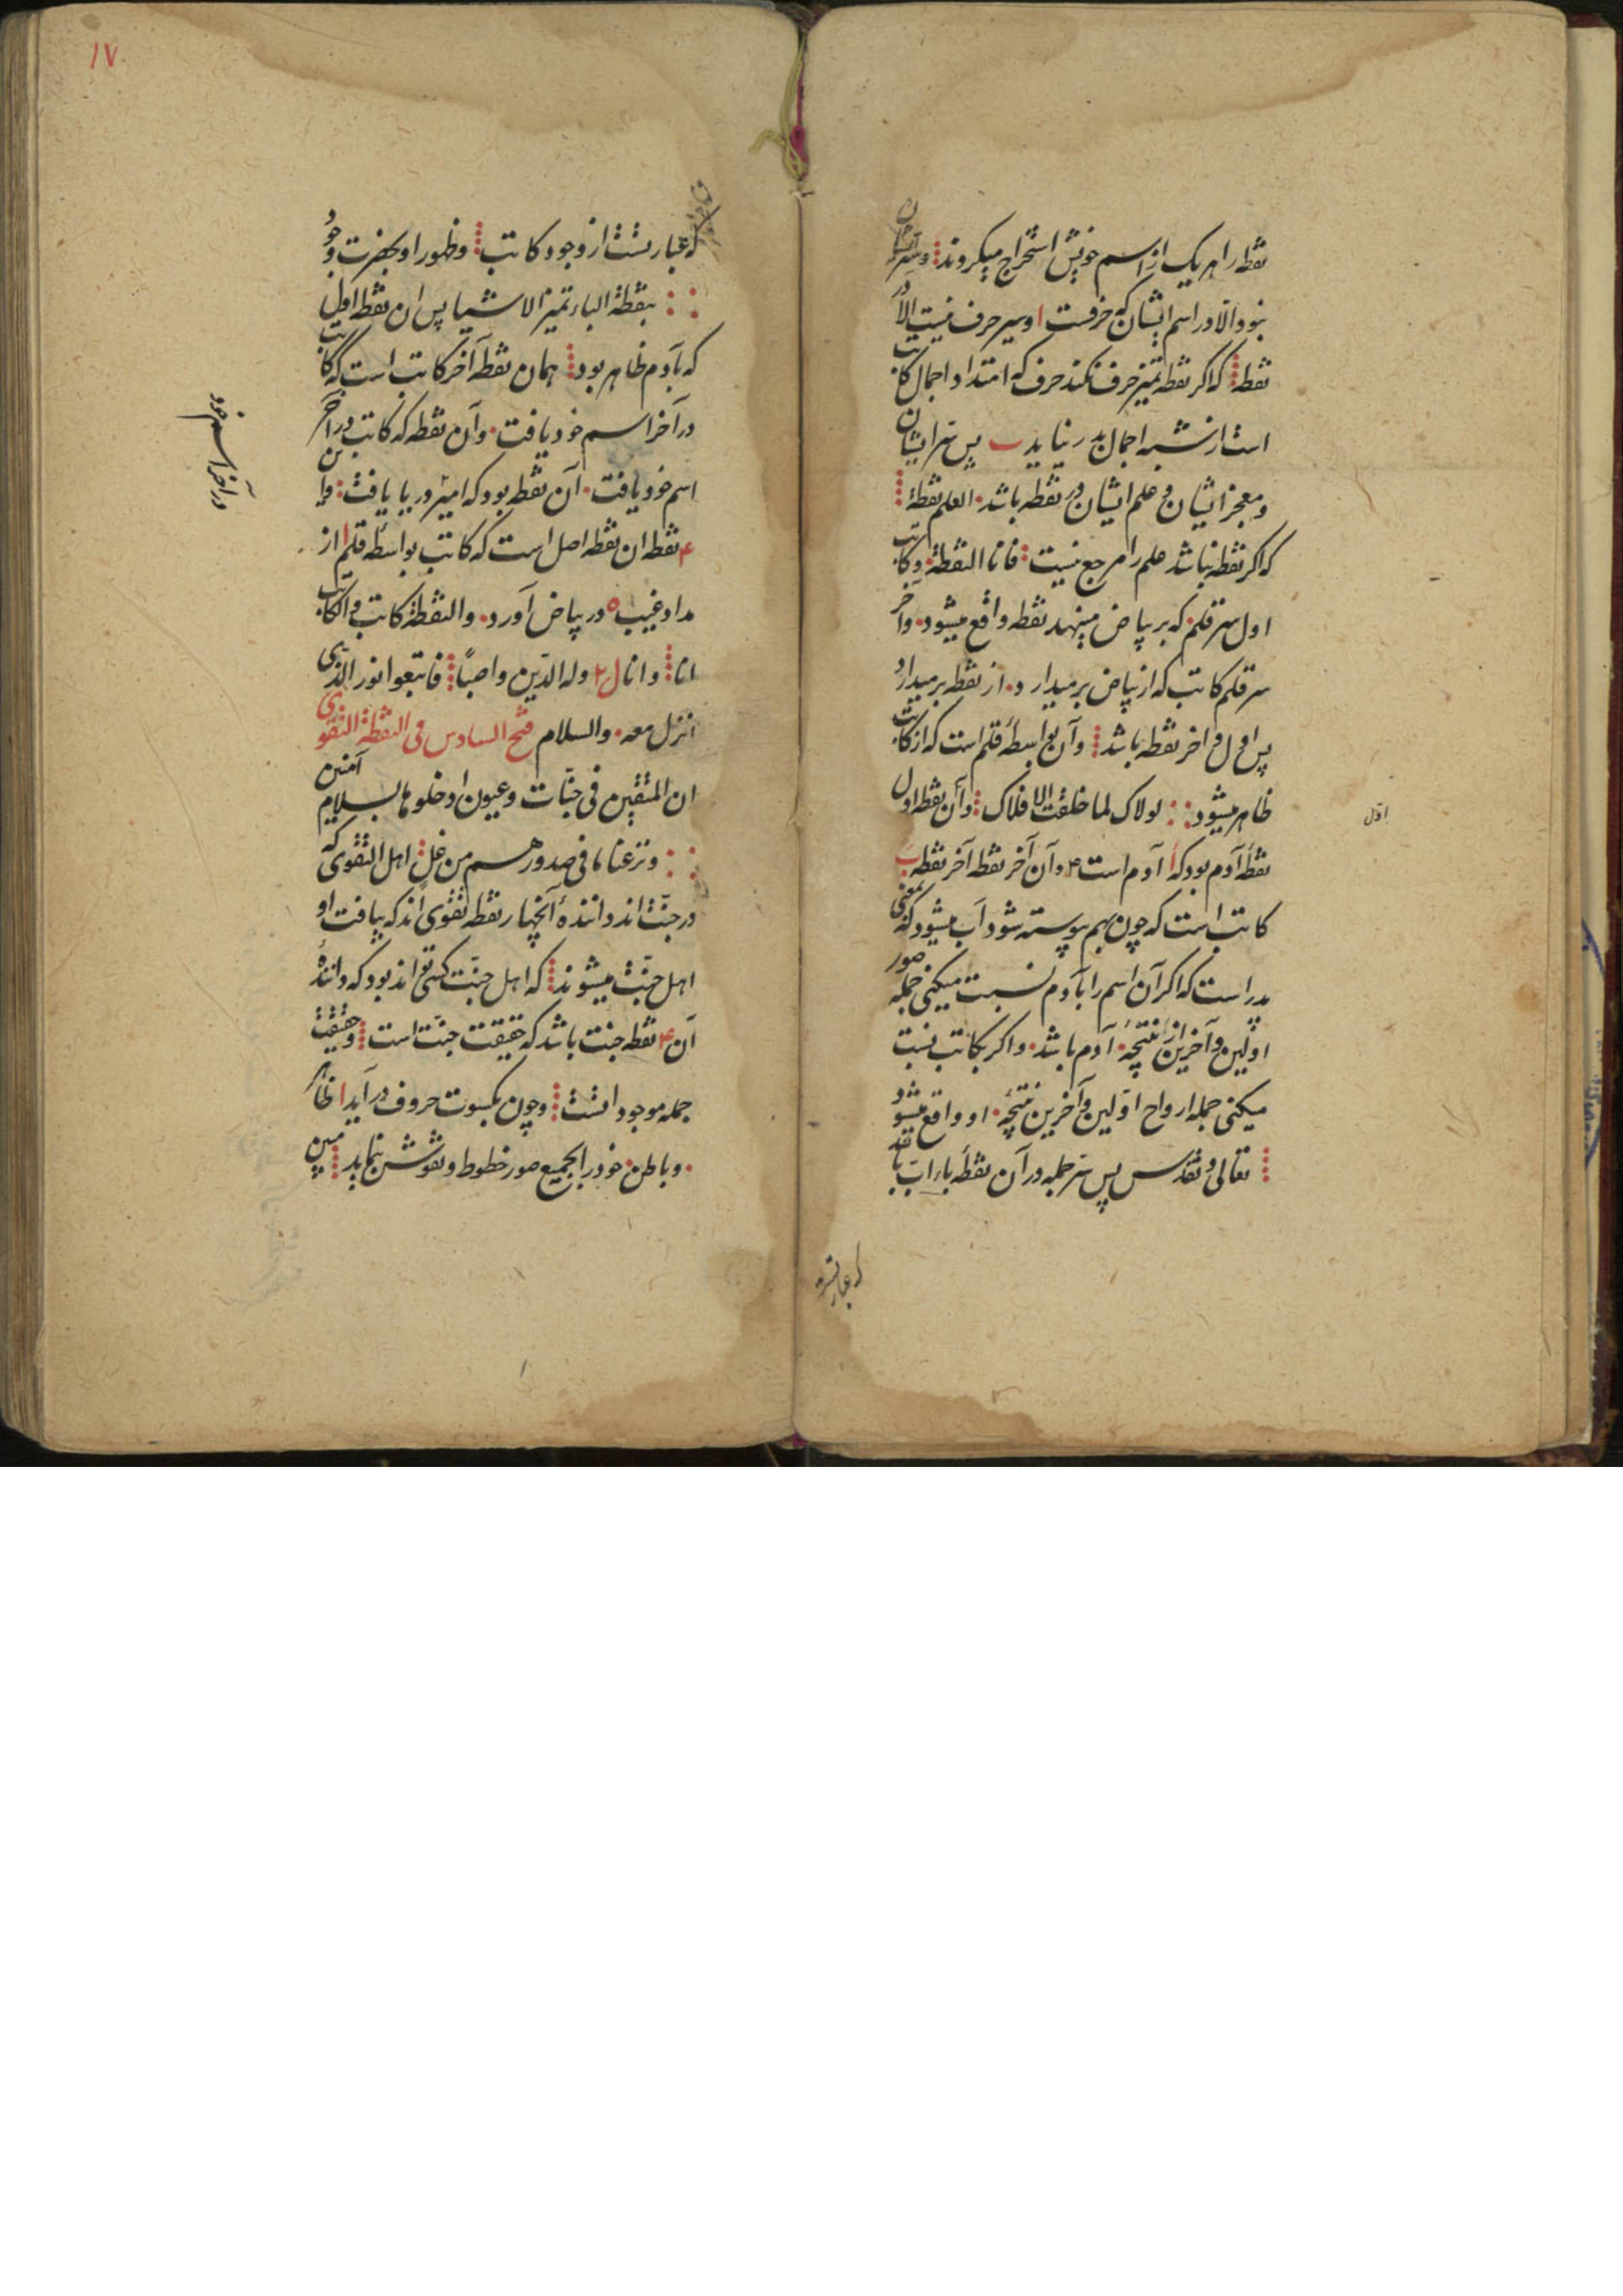 نقطه را هر یک از اسم خویش استخراج میکردند وسر ایشان
نبود الّا در اسم ایشان که حرفست ا وسر حرف نیست الّا در
نقطه که اکر نقطه تمیز حرف نکند حرف که امتداد اجمال کاتب
است از شبه اجمال بدر نیاید ب پس سر ایشان
ومعجز ایشان وعلم ایشان در نقطه باشد العلم نقطة
که اکر نقطه نباشد علم را مرجع نیست فانا النقطة وکاتب
اول سر قلم که بر بیاض مینهد نقطه واقع میشود وآخر
سر قلم کاتب که از بیاض بر میدارد از نقطه بر میدارد
پس اول وآخر نقطه باشد وآن بواسطهٔ قلم است که از کاتب
ظاهر میشود لولاک لما خلقت الافلاک وآن نقطه اول
اوّل
نقطهٔ آدم بود که ا آدم است ۴ وآن آخر نقطه آخر نقطه ب
کاتب است که چون بهم پیوسته شود آب میشود که بمعنی
پدر است که اکر آن اسم را بآدم نسبت میکنی جمله صور
اوّلین وآخرین از نتیجهٔ آدم باشد واکر بکاتب نسبت
میکنی جمله ارواح اوّلین وآخرین نتیجهٔ او واقع میشود
تعالی وتقدس پس سر جمله در آن نقطهٔ باء اب باشد
که عبارتست
۱۷
که عبارتست از وجود کاتب وظهور او بحضرت وجود
بنقطة الباء تمیز الاشیا پس آن نقطه اول
که بآدم ظاهر بود همان نقطهٔ آخر کاتب است که کاتب
در آخر اسم خود یافت وآن نقطه که کاتب در آخر
در آخر اسم خود
اسم خود یافت آن نقطه بود که امیر در با یافت واین
۴ نقطه ان نقطه اصل است که کاتب بواسطه قلم ا از
مداد غیب ٥ در بیاض آورد والنقطة کاتب والکاتب
انا وانا ل ٢ وله الدّین واصبًا فاتبعوا نور الذی
انزل معه والسلام فتح السادس فی النقطة التقوی
ان المتقین فی جنّات وعیون ادخلوها بسلام آمنین
ونزعنا ما فی صدورهم من غل اهل التقوی که
در جنّت اند دانندهٔ آنچهار نقطه تقوی اند که بیافت او
اهل جنّت میشوند که اهل جنّت کسی تواند بود که دانندهٔ
آن ۴ نقطه جنت باشد که حقیقت جنّت است وحقیقت
جمله موجوداتست وچون بکسوت حروف در آید ا ظاهر
وباطن خود را بجمیع صور خطوط ونقوش بنماید مبین